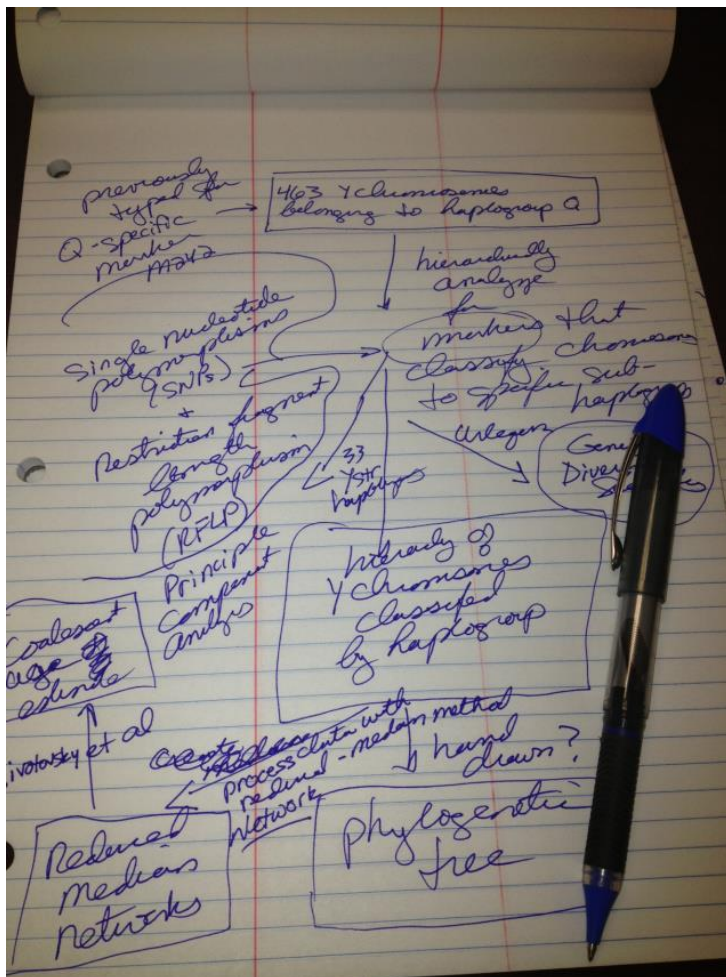 previously
typed for
Q-specific
marker
M242
463 Y chromosomes
belonging to haplogroup Q
hierarchically
analyze
for
markers that
classify chromosomes
to specific sub-
haplogroup
Single nucleotide
polymorphisms
(SNPs)
+
Restriction fragment
length
polymorphism
(RFLP)
33
Ystr
Arlequin
Diver
Principle
Component
analysis
Y Chromosomes
classified
by haplogroup
Coalescent
age
estimate
ivotovsky et al
process data with
reduced-median method
Network
hand
drawn?
Reduced
Median
networks
phylogenetic
tree